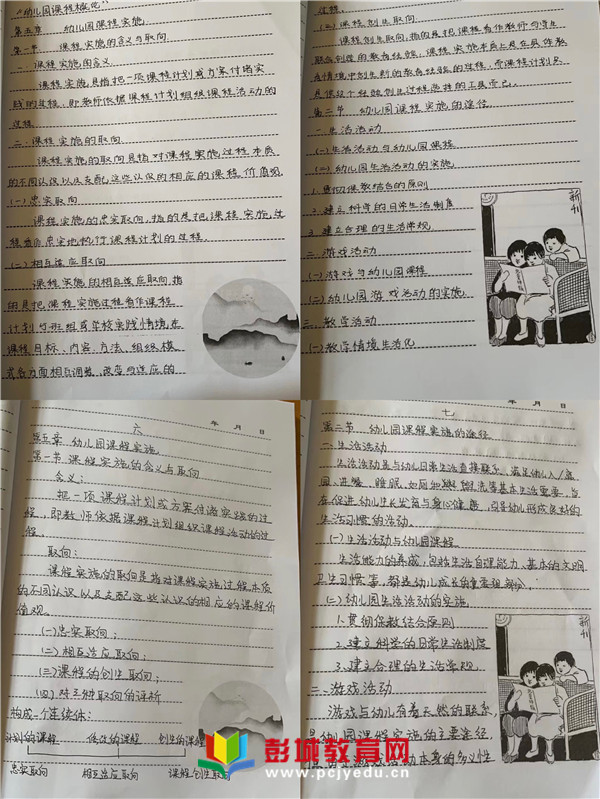 《幼儿园课程概论》
第五章 幼儿园课程实施
第一节 课程实施的含义与取向
一.课程实施的含义
课程实施是指把一项课程计划或方案付诸实
践的过程,即教师依据课程计划组织课程活动的
过程.
二.课程实施的取向
课程实施的取向是指对课程实施过程本质
的不同认识以及支配这些认识的相应的课程价值观.
(一)忠实取向
课程实施的忠实取向,指的是把课程实施过
程看成忠实地执行课程计划的过程.
(二)相互适应取向
课程实施的相互适应取向,指
的是把课程实施过程看作课程
计划与班组或学校实践情境在
课程目标、内容、方法、组织模
式各方面相互调整、改变与适应的
过程.
(三)课程创生取向
课程创生取向,指的是把课程看作教师与学生
联合创造的教育经验,课程实施本质上是在具体教
育情境中创生新的教育经验的过程,而课程计划只
是供这个经验创生过程选择的工具而已.
第二节 幼儿园课程实施的途径
一.生活活动
(一)生活活动与幼儿园课程
(二)幼儿园生活活动的实施
1.贯彻保教结合的原则
2.建立科学的日常生活制度
3.建立合理的生活常规
二.游戏活动
(一)游戏与幼儿园课程
(二)幼儿园游戏活动的实施
三.教学活动
(一)教学情境生活化
新刊
六
年 月 日
第五章 幼儿园课程实施
第一节 课程实施的含义与取向
含义:
把一项课程计划或方案付诸实践的过
程,即教师依据课程计划组织课程活动的过
程.
取向:
课程实施的取向是指对课程实施过程本质
的不同认识以及支配这些认识的相应的课程价
值观.
(一)忠实取向;
(二)相互适应取向;
(三)课程的创生取向;
(四)对三种取向的评析
构成一个连续体:
计划的课程 修改的课程 创生的课程
忠实取向 相互适应取向 课程创生取向
七
年 月 日
第二节 幼儿园课程实施的途径
一.生活活动
生活活动是与幼儿日常生活直接联系、满足幼儿入/离
园、进餐、睡眠、如厕和盥洗等基本生活需要,旨
在促进幼儿生长发育与身心健康,引导幼儿形成良好的
生活习惯的活动.
(一)生活活动与幼儿园课程
生活能力的养成,包括生活自理能力、基本的文明
卫生习惯等,都是幼儿成长的重要部分.
(二)幼儿园生活活动的实施
1.贯彻保教结合原则
2.建立科学的日常生活制度
3.建立合理的生活常规
二、游戏活动
游戏与幼儿有着天然的联系
是幼儿园课程实施的主要途径,
新刊
彭城教育网
www.pcjyedu.cn